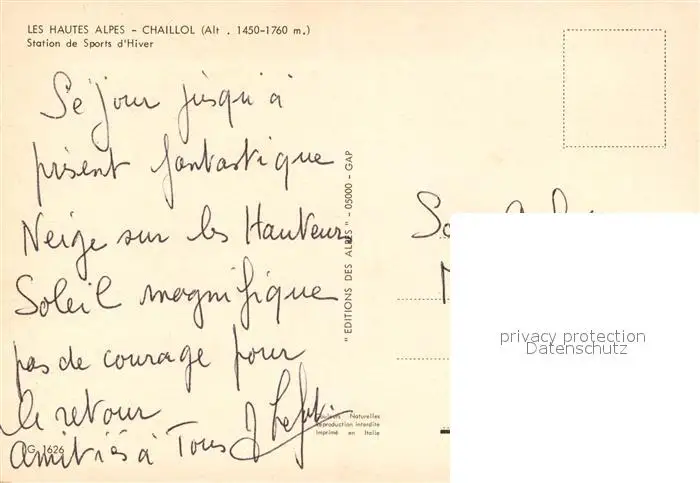 LES HAUTES ALPES - CHAILLOL (Alt . 1450-1760 m.)
Station de Sports d'Hiver
Séjour jusqu'à
présent fantastique
Neige sur les Hauteurs
Soleil magnifique
pas de courage pour
le retour
amitiés à Tous
G 1626
" EDITIONS DES ALPES " - 05000 - GAP
Couleurs Naturelles
Reproduction interdite
Imprimé en Italie
privacy protection
Datenschutz